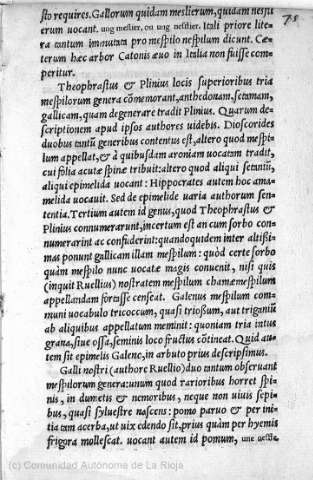 sto requires. Gallorum quidam meslierum, quidam nesflierum
uocant. ung meslier, ou ung nesflier. Itali priore litera
tantum immutata pro mespilo nespilum dicunt. Cæterum
hæc arbor Catonis æuo in Italia non fuisse comperitur.
Theophrastus & Plinius locis superioribus tria
mespilorum genera cōmemorant, anthedonam, setaniam,
gallicam, quam degenerare tradit Plinius. Quarum descriptionem
apud ipsos authores uidebis. Dioscorides
duobus tantū generibus contentus est, altero quod mespilum
appellat, & à quibusdam aroniam uocatam tradit,
cui folia acutæ spinæ tribuit: altero quod aliqui setaniū,
aliqui epimelida uocant: Hippocrates autem hoc amamelida
uocauit. Sed de epimelide uaria authorum sententia.
Tertium autem id genus, quod Theophrastus &
Plinius connumerarunt, incertum est an cum sorbo connumerarint
ac confiderint: quandoquidem inter altißimas
ponunt gallicam illam mespilum: quòd certe sorbo
quàm mespilo nunc uocatæ magis conuenit, nisi quis
(inquit Ruellius) nostratem mespilum chamæmespilum
appellandam fortasse censeat. Galenus mespilum communi
uocabulo tricoccum, quasi trioßum, aut trigraniū
ab aliquibus appellatum meminit: quoniam tria intus
grana, siue ossa, seminis loco fructus cōtineat. Quid autem
sit epimelis Galeno, in arbuto prius descripsimus.
Galli nostri (authore Ruellio) duo tantum obseruant
mespilorum genera: unum quod rarioribus horret spinis,
in dumetis & nemoribus, neque non uiuis sepibus,
quasi syluestre nascens: pomo paruo & per initia
tam acerba, ut uix edendo sit, prius quàm per hyemis
frigora mollescat. uocant autem id pomum, une
75
(c) Comunidad Autónoma de La Rioja